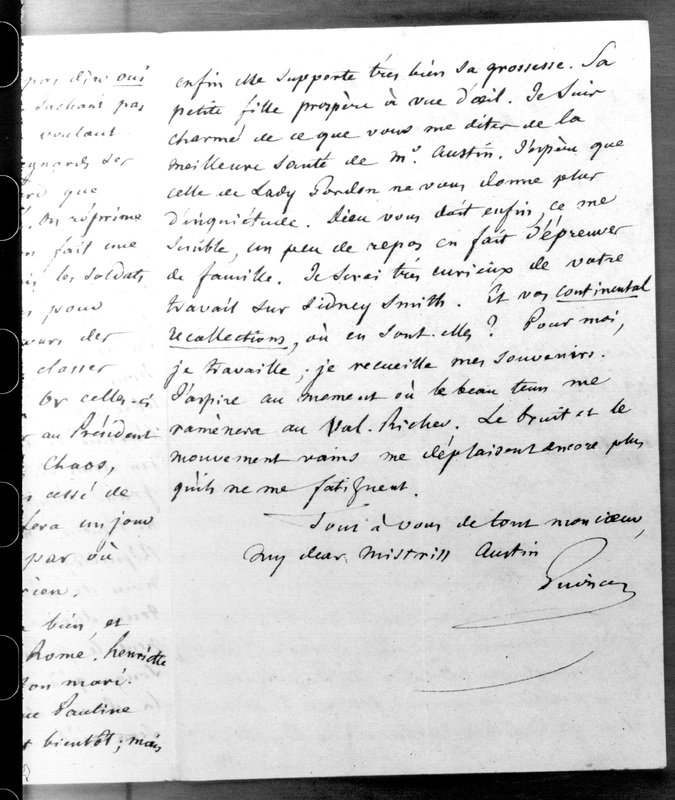 pas dire oui
sachant pas
voulant
que
. On réprime
fait une
les soldats
pour
des
classer
or celles-ci
au Président
chaos,
cessé de
sera un jour
par où
rien
bien et
Rome. henriette
son mari.
Pauline
bientôt ; mais
enfin elle supporte très bien sa grossesse. Sa
petite fille prospère à vue d'œil. Je suis
charmé de ce que vous me dites de la
meilleure santé de Mr. Austin. J'espère que
celle de Lady Gordon ne vous donne plus
d'inquiétude. Dieu vous doit enfin, ce me
semble, un peu de repos en fait d'épreuves
de famille. Je serai très curieux de votre
travail sur Sidney Smith. Et vos continental
recollections, où en sont-elles ? Pour moi,
je travaille ; je recueille mes souvenirs.
J'aspire au moment où le beau tems me
ramènera au Val-Richer. Le bruit et le
mouvement vains me déplaisent encore plus
qu'ils ne me fatiguent.
Tout à vous de tout mon cœur,
my dear Mistriss Austin
Guizot